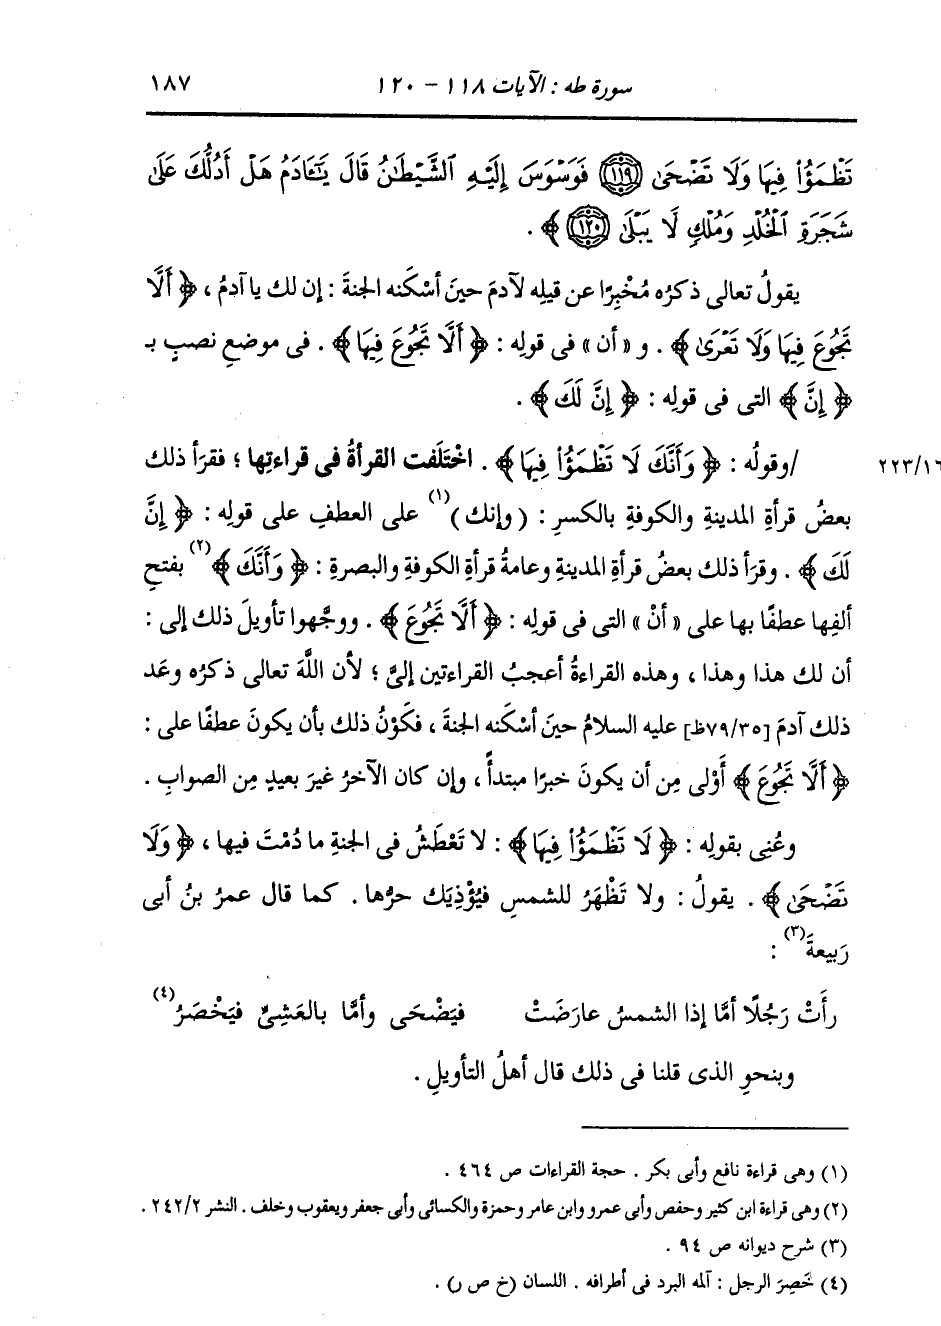 سورة طه : الآيات ١١٨ - ١٢٠ ١٨٧
تَظْمَؤُا۟ فِيهَا وَلَا تَضْحَىٰ ﴿١١٩﴾ فَوَسْوَسَ إِلَيْهِ ٱلشَّيْطَـٰنُ قَالَ يَـٰٓـَٔادَمُ هَلْ أَدُلُّكَ عَلَىٰ
شَجَرَةِ ٱلْخُلْدِ وَمُلْكٍ لَّا يَبْلَىٰ ﴿١٢٠﴾ ﴾ .
يقولُ تعالى ذكرُه مُخْبِرًا عن قيلِه لآدمَ حينَ أسْكَنه الجنةَ : إن لك يا آدمُ ، ﴿ أَلَّا
تَجُوعَ فِيهَا وَلَا تَعْرَىٰ ﴾ . و « أن » فى قولِه : ﴿ أَلَّا تَجُوعَ فِيهَا ﴾ . فى موضعِ نصبٍ بـ
﴿ إِنَّ ﴾ التى فى قولِه : ﴿ إِنَّ لَكَ ﴾ .
/وقولُه : ﴿ وَأَنَّكَ لَا تَظْمَؤُا۟ فِيهَا ﴾ . اخْتَلَفت القرأةُ فى قراءتِها ؛ فقرَأ ذلك ٢٢٣/١٦
بعضُ قرأةِ المدينةِ والكوفةِ بالكسرِ : ( وإنك )(١) على العطفِ على قولِه : ﴿ إِنَّ
لَكَ ﴾ . وقرَأ ذلك بعضُ قرأةِ المدينةِ وعامةُ قرأةِ الكوفةِ والبصرةِ : ﴿ وَأَنَّكَ ﴾(٢) بفتحِ
ألفِها عطفًا بها على « أنْ » التى فى قولِه : ﴿ أَلَّا تَجُوعَ ﴾ . ووجَّهوا تأويلَ ذلك إلى :
أن لك هذا وهذا ، وهذه القراءةُ أعجبُ القراءتين إلىَّ ؛ لأن اللَّهَ تعالى ذكرُه وعَد
ذلك آدمَ [٧٩/٣٥ظ] عليه السلامُ حينَ أسْكَنه الجنةَ ، فكَوْنُ ذلك بأن يكونَ عطفًا على :
﴿ أَلَّا تَجُوعَ ﴾ أَوْلى مِن أن يكونَ خبرًا مبتدأً ، وإن كان الآخرُ غيرَ بعيدٍ مِن الصوابِ .
وعُنِى بقولِه : ﴿ لَا تَظْمَؤُا۟ فِيهَا ﴾ : لا تَعْطَشُ فى الجنةِ ما دُمْتَ فيها ، ﴿ وَلَا
تَضْحَىٰ ﴾ . يقولُ : ولا تَظْهَرُ للشمسِ فيُؤْذِيَك حرُّها . كما قال عمرُ بنُ أبى
رَبيعةَ(٣) :
رأَتْ رَجُلًا أمَّا إذا الشمسُ عارَضَتْ فيَضْحَى وأمَّا بالعَشِىِّ فيَخْصَرُ(٤)
وبنحوِ الذى قلنا فى ذلك قال أهلُ التأويلِ .
(١) وهى قراءة نافع وأبى بكر . حجة القراءات ص ٤٦٤ .
(٢) وهى قراءة ابن كثير وحفص وأبى عمرو وابن عامر وحمزة والكسائى وأبى جعفر ويعقوب وخلف . النشر ٢٤٢/٢ .
(٣) شرح ديوانه ص ٩٤ .
(٤) خَصِرَ الرجل : آلمه البرد فى أطرافه . اللسان (خ ص ر) .